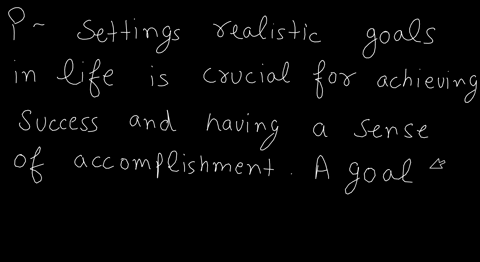 P~ Settings realistic goals
in life is crucial for achieving
success and having a sense
of accomplishment. A goal